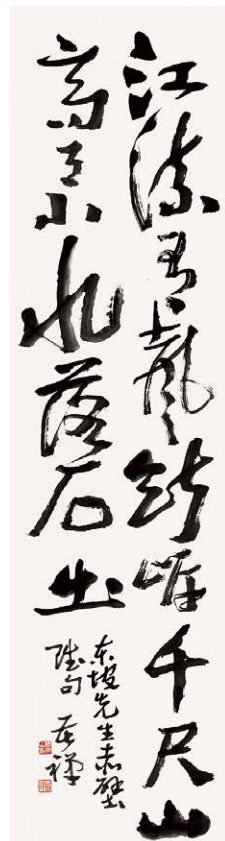 江流有聲斷岸千尺山
高月小水落石出
东坡先生赤壁
賦句 苦禅